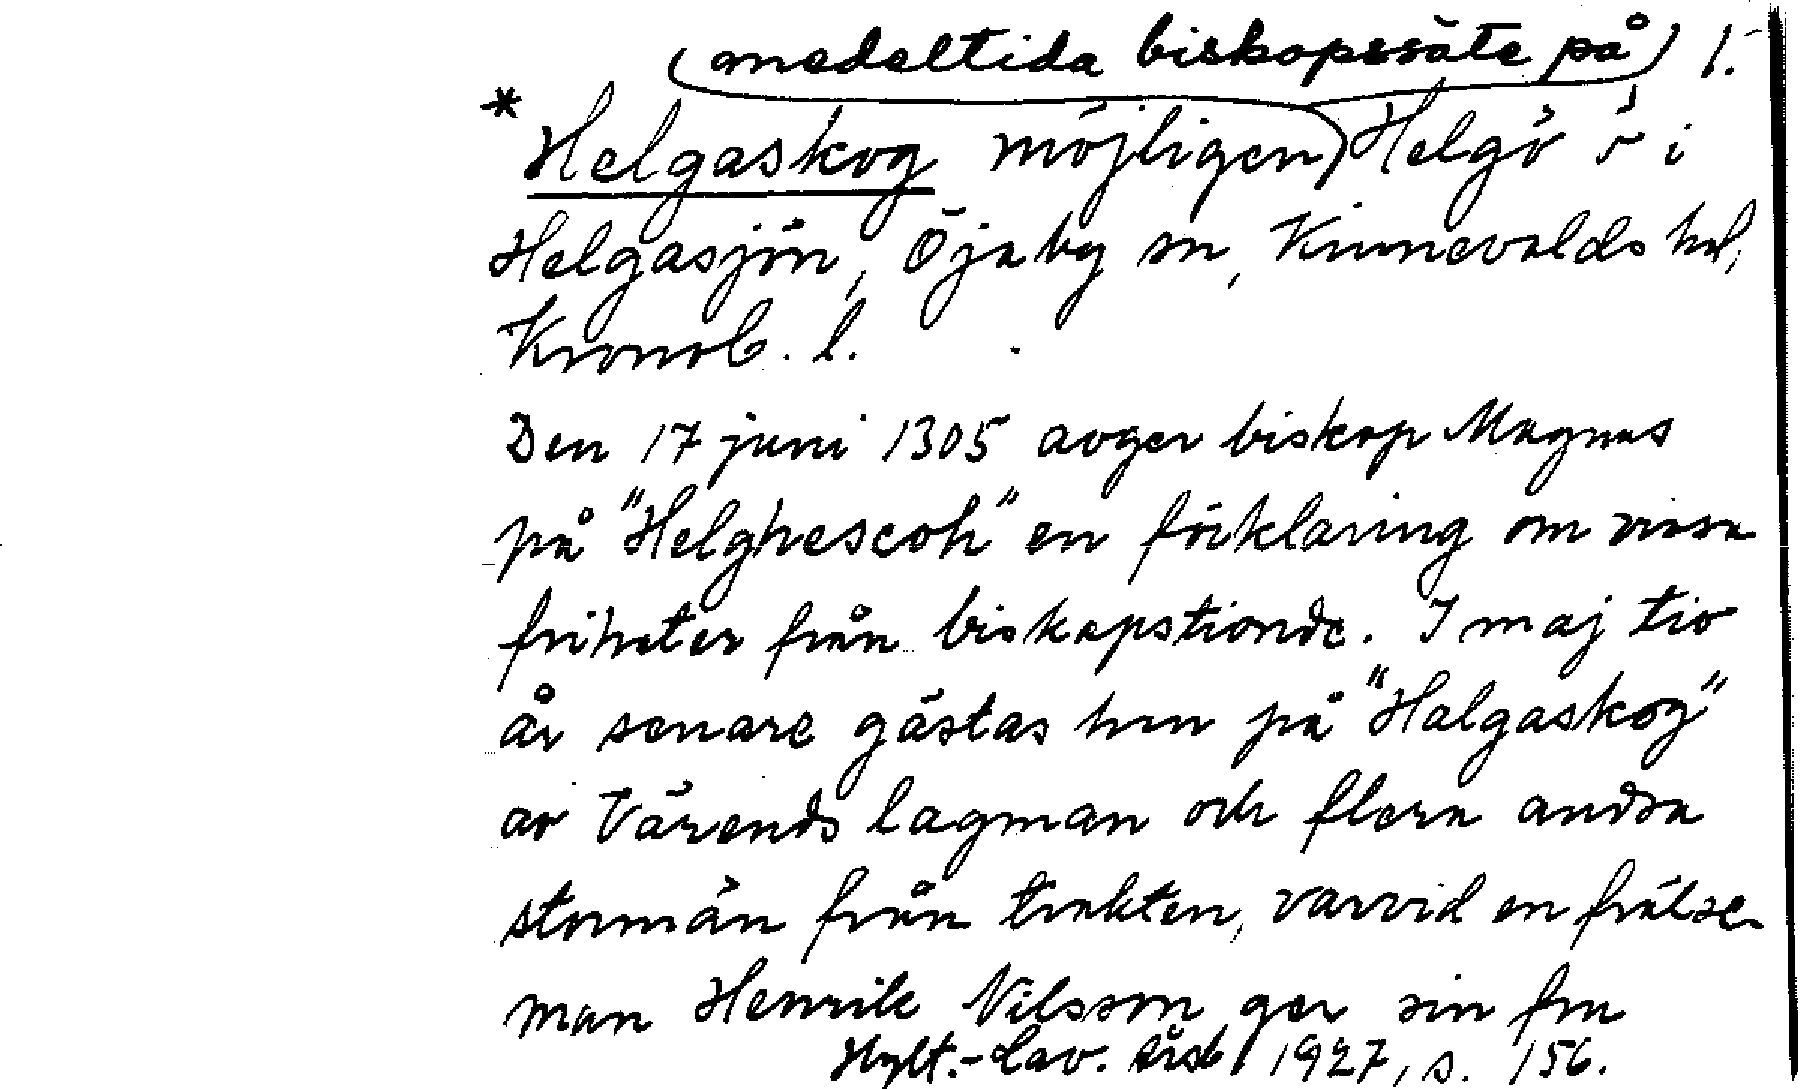 (medeltida biskopssäte på) 1.
* Helgaskog möjligen Helgö ö i
Helgasjön, Öjaby sn, Kinnevalds hd,
Kronob. l.
Den 17 juni 1305 avger biskop Magnus
på "Helghescoh" en förklaring om vissa
friheter från biskopstionde. I maj tio
år senare gästas han på "Halgaskog"
av Värends lagman och flera andra
stormän från trakten, varvid en frälse-
man Henrik Nilsson ger sin fru
Hylt.-Cav. årsb 1927, s. 156.